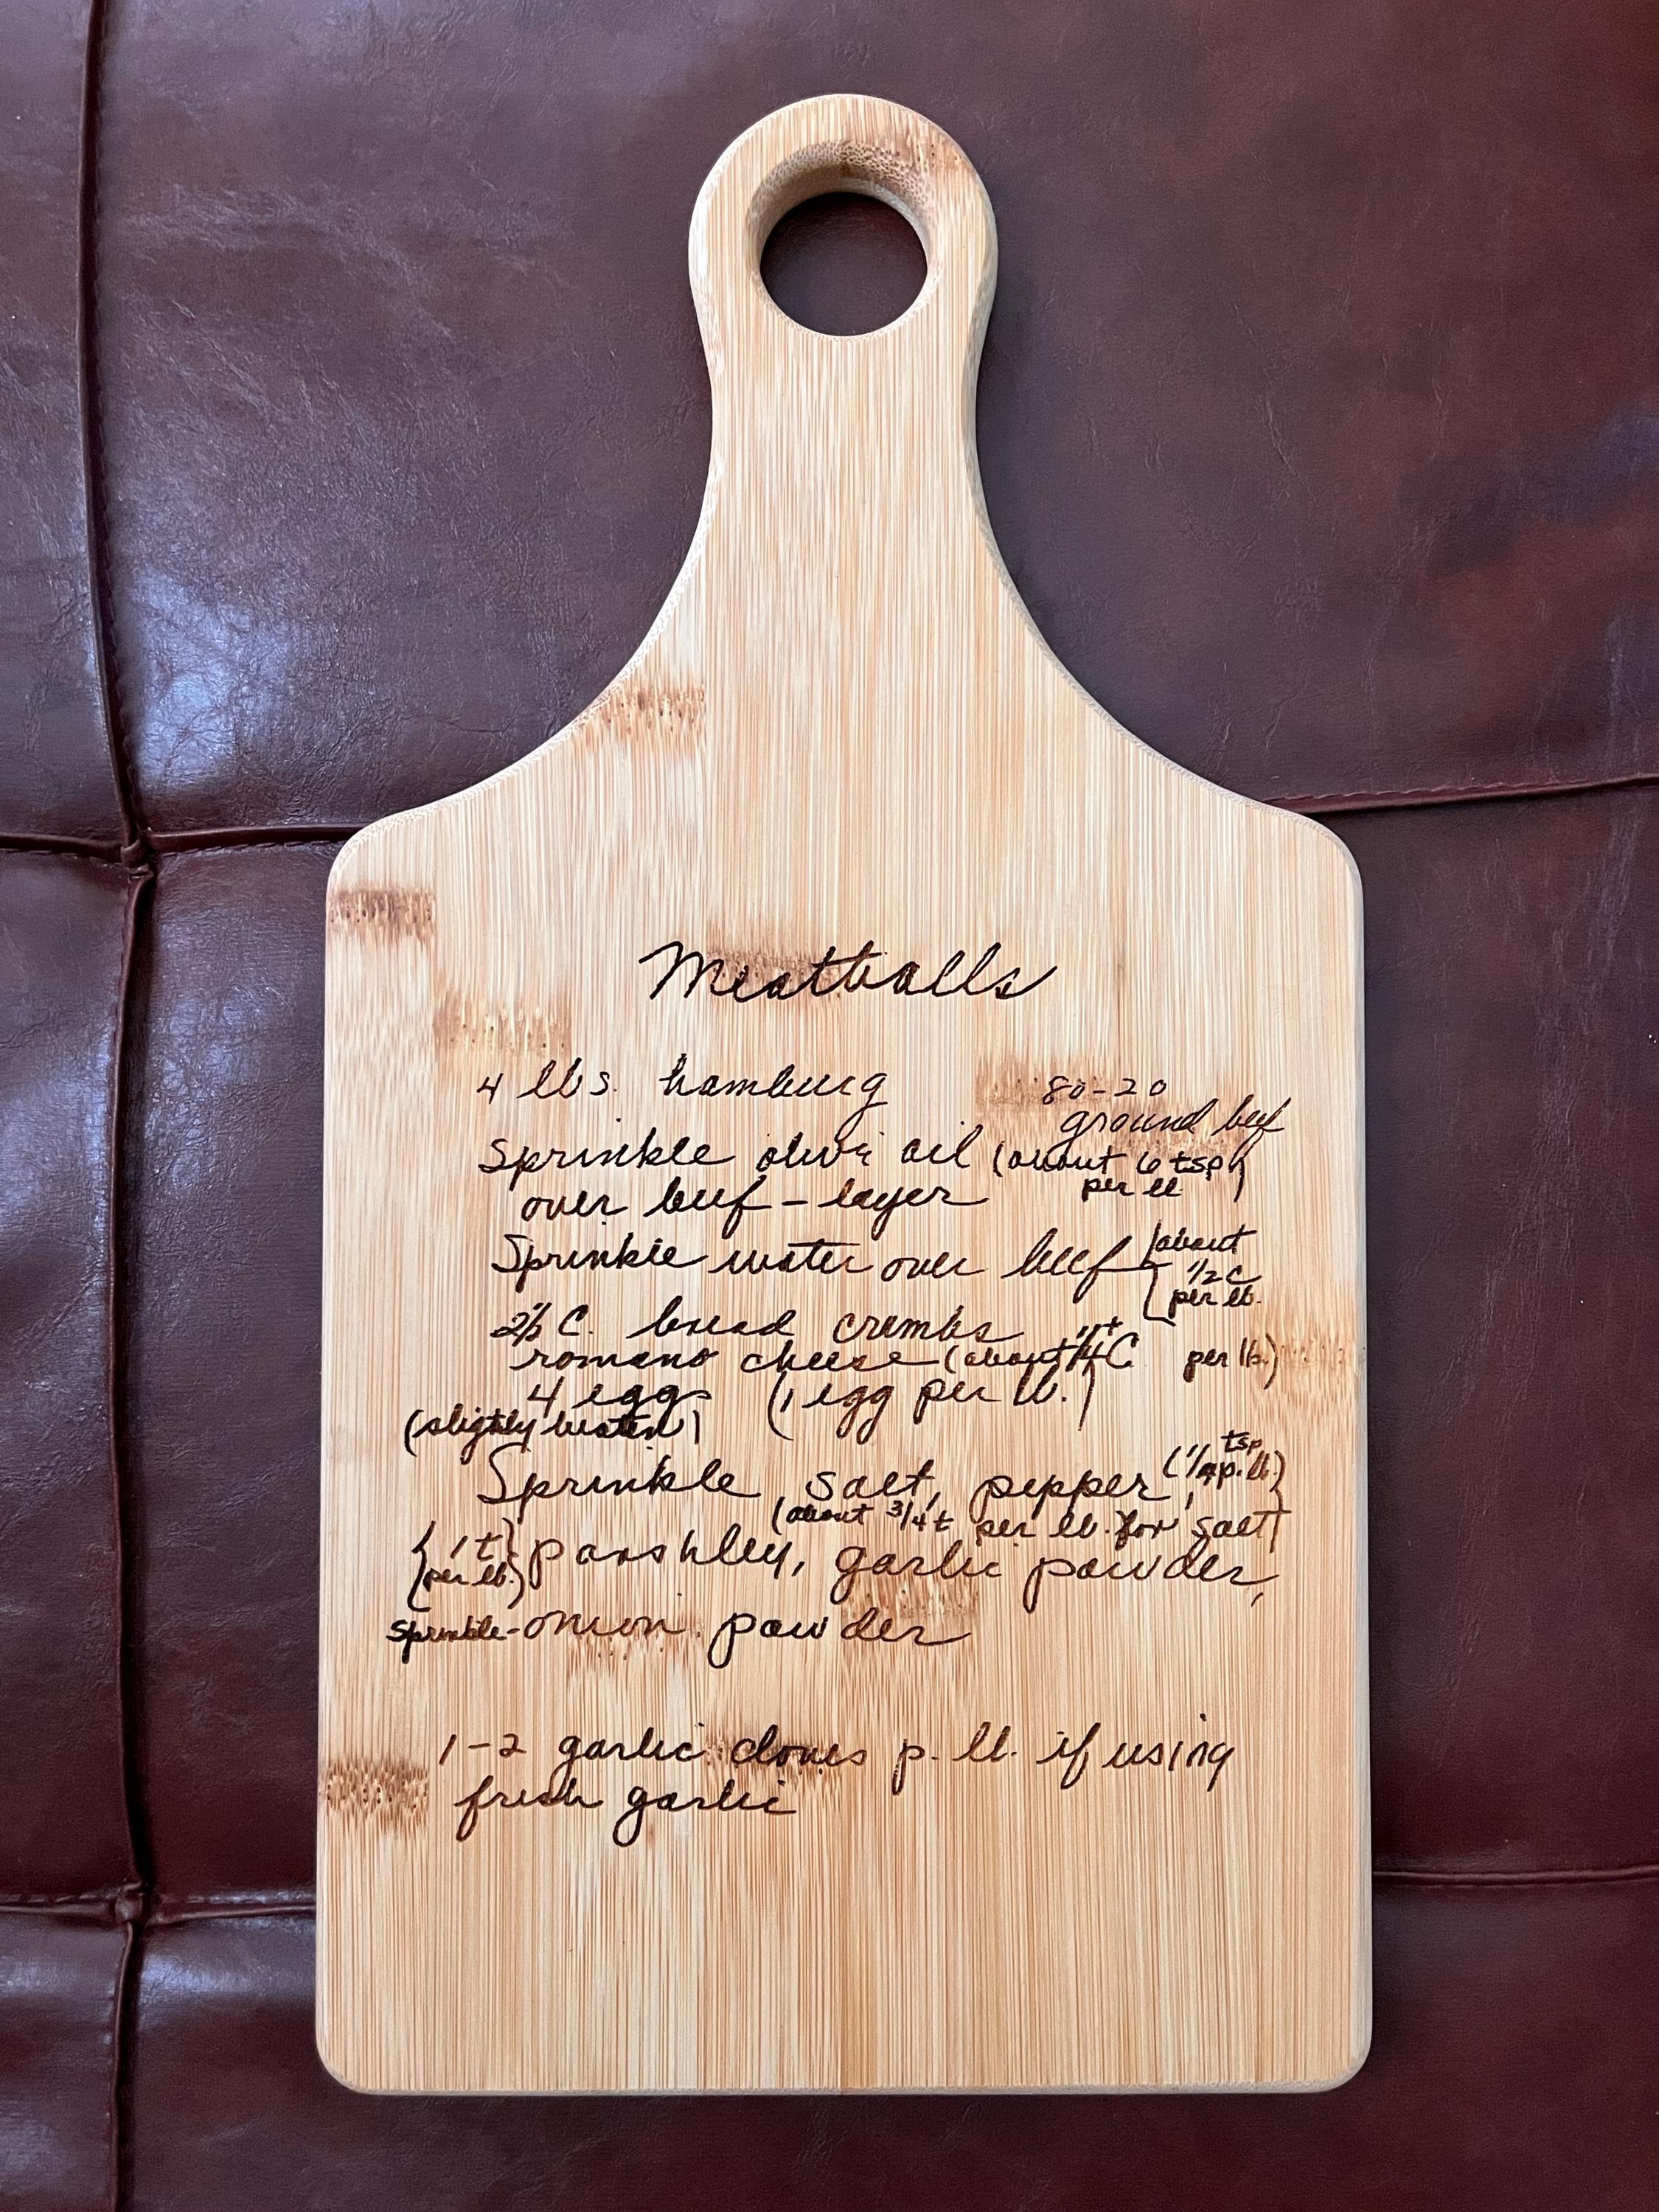 Meatballs
4 lbs. hamburg 80-20
ground beef
Sprinkle olive oil (about 6 tsp
per lb)
over beef - layer
Sprinkle water over beef (about
1/2 C
per lb.
C. bread crumbs
romano cheese (about 1/4 C per lb.)
4 eggs (1 egg per lb.)
(slightly beaten)
Sprinkle salt, pepper, (tsp p. lb.)
(about 3/4 t per lb. for salt)
(1 t
per lb.) parshley, garlic powder,
sprinkle - onion powder
1-2 garlic cloves p. lb. if using
fresh garlic